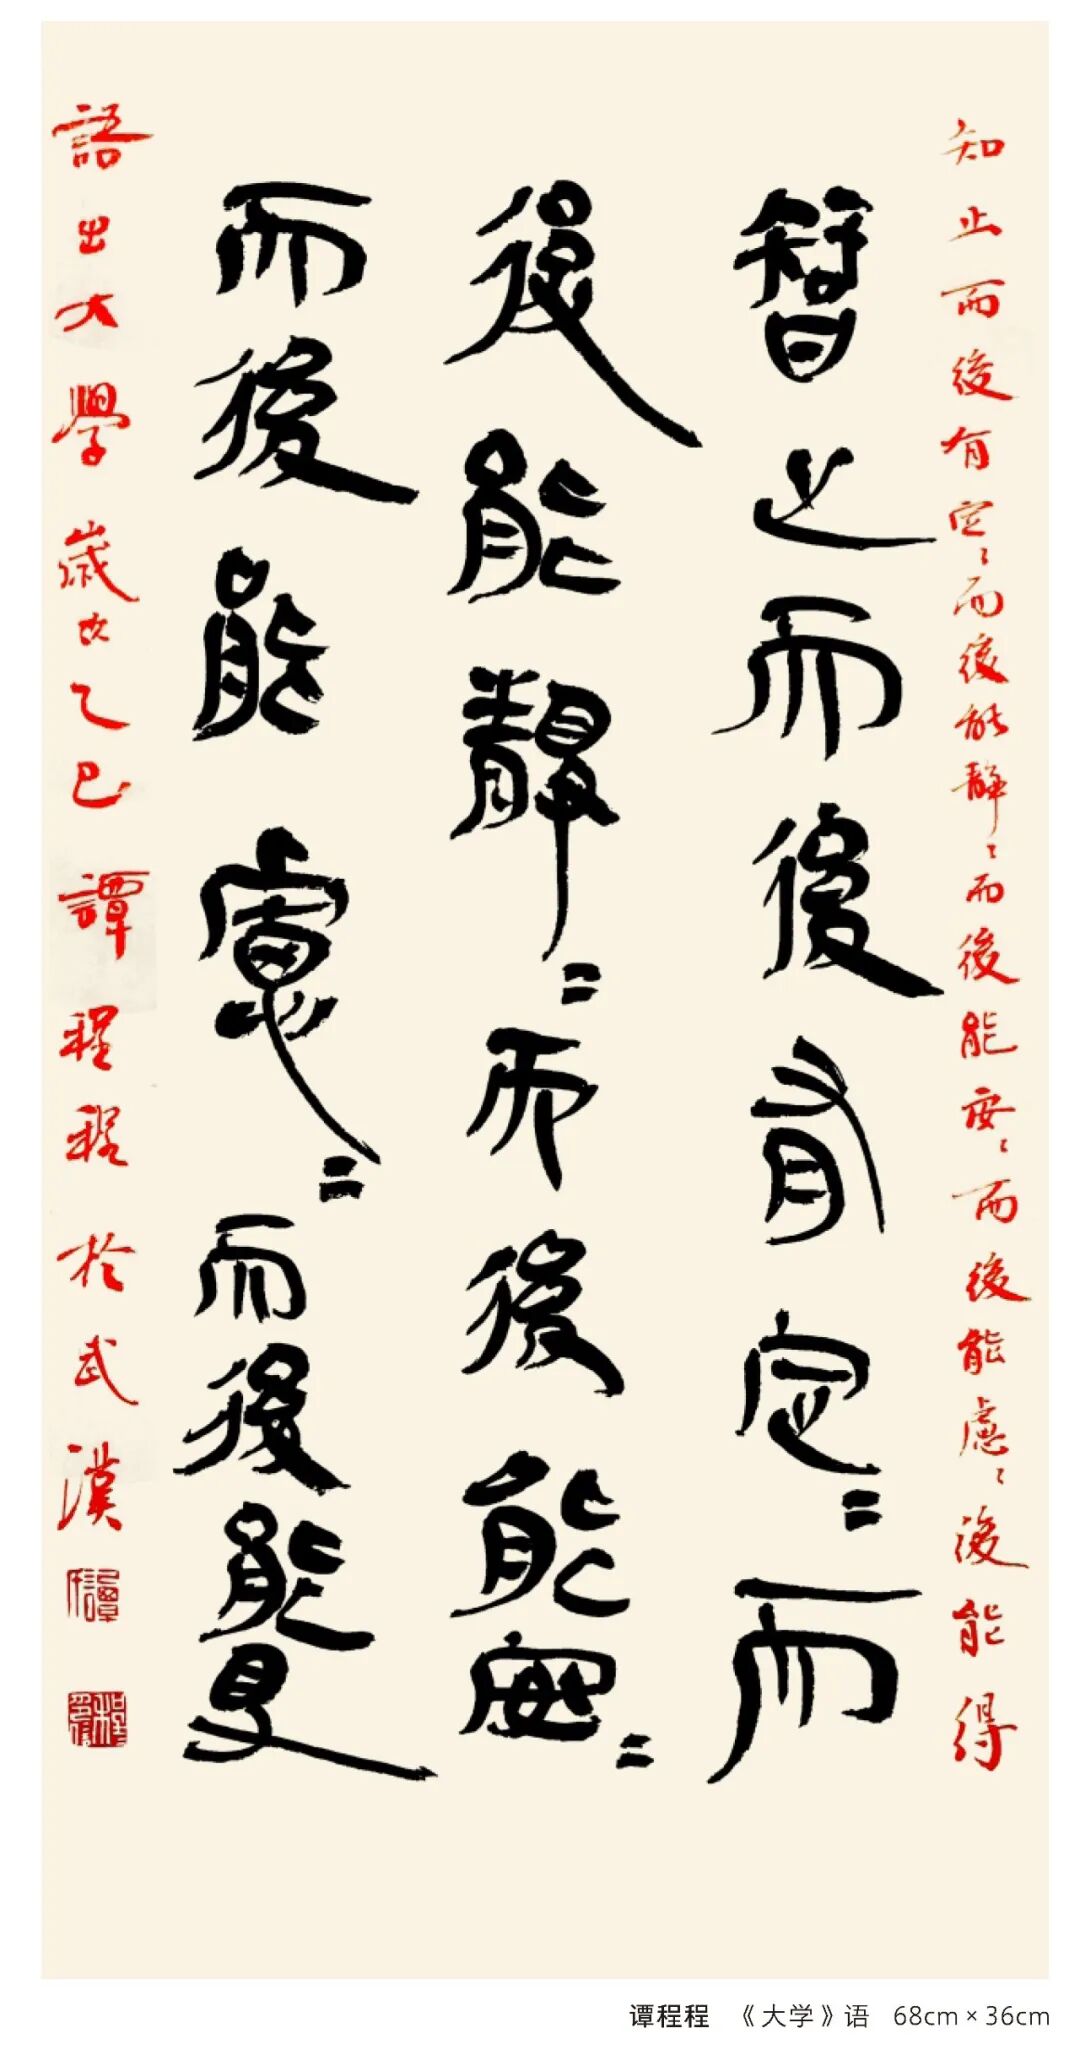 知止而後有定〻而後能静〻而後能安〻而後能慮〻後能得
智止而後有定〓而
後能靜〓而後能安〓
而後能慮〓而後能得
語出大學歲次乙巳譚程程於武漢
谭程程 《大学》语 68cm × 36cm